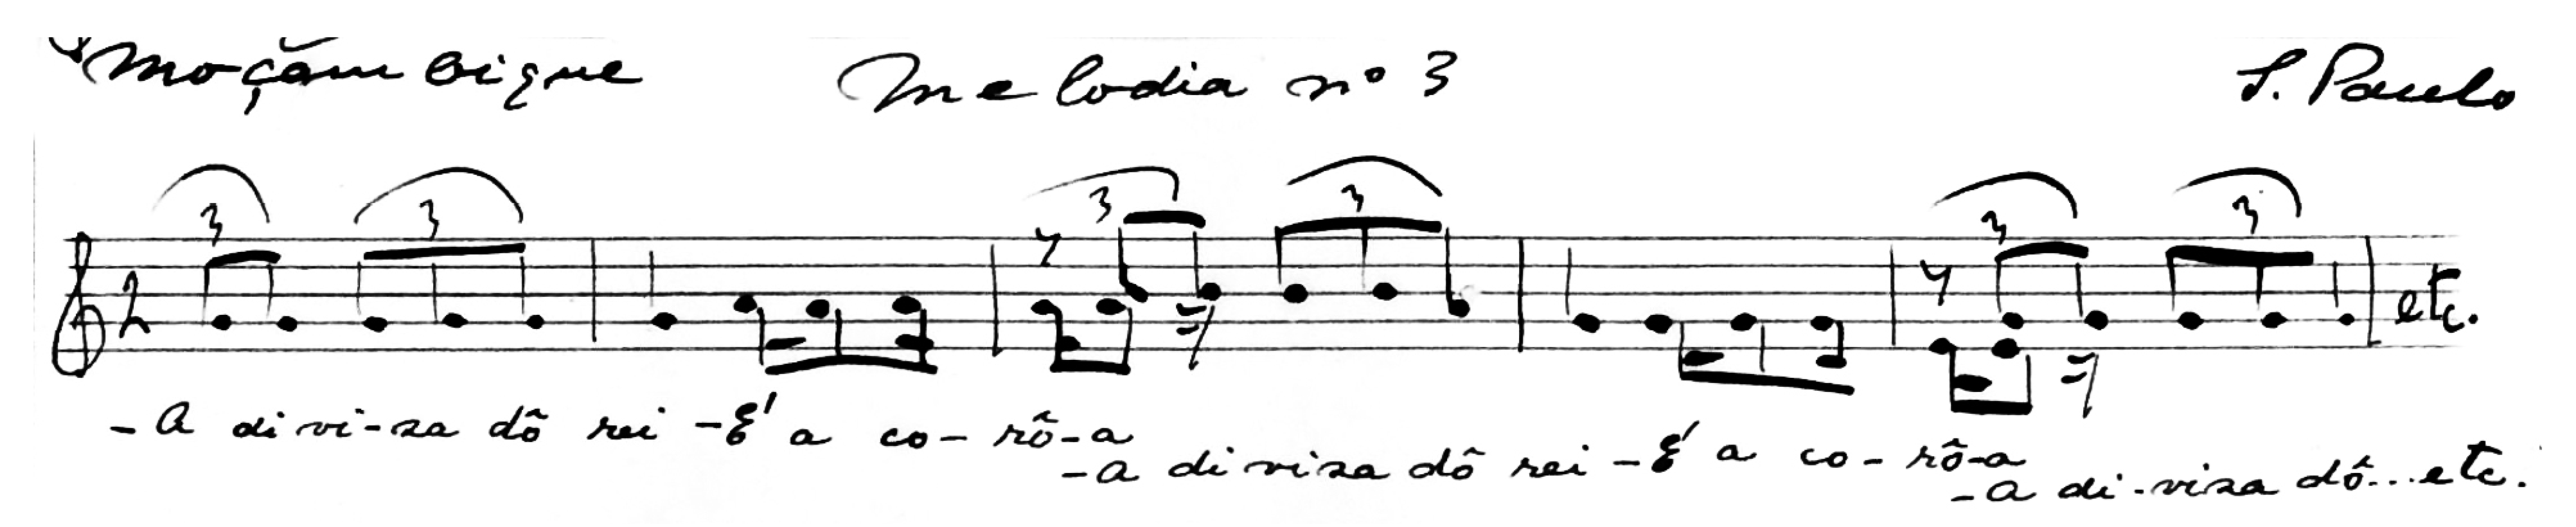 Moçambique Melodia nº 3 S. Paulo
3 3 3 3 3 3
2 etc.
- A di vi-za dô rei - É a co - rô - a
- A di viza dô rei - É a co - rô - a
- A di - viza dô... etc.